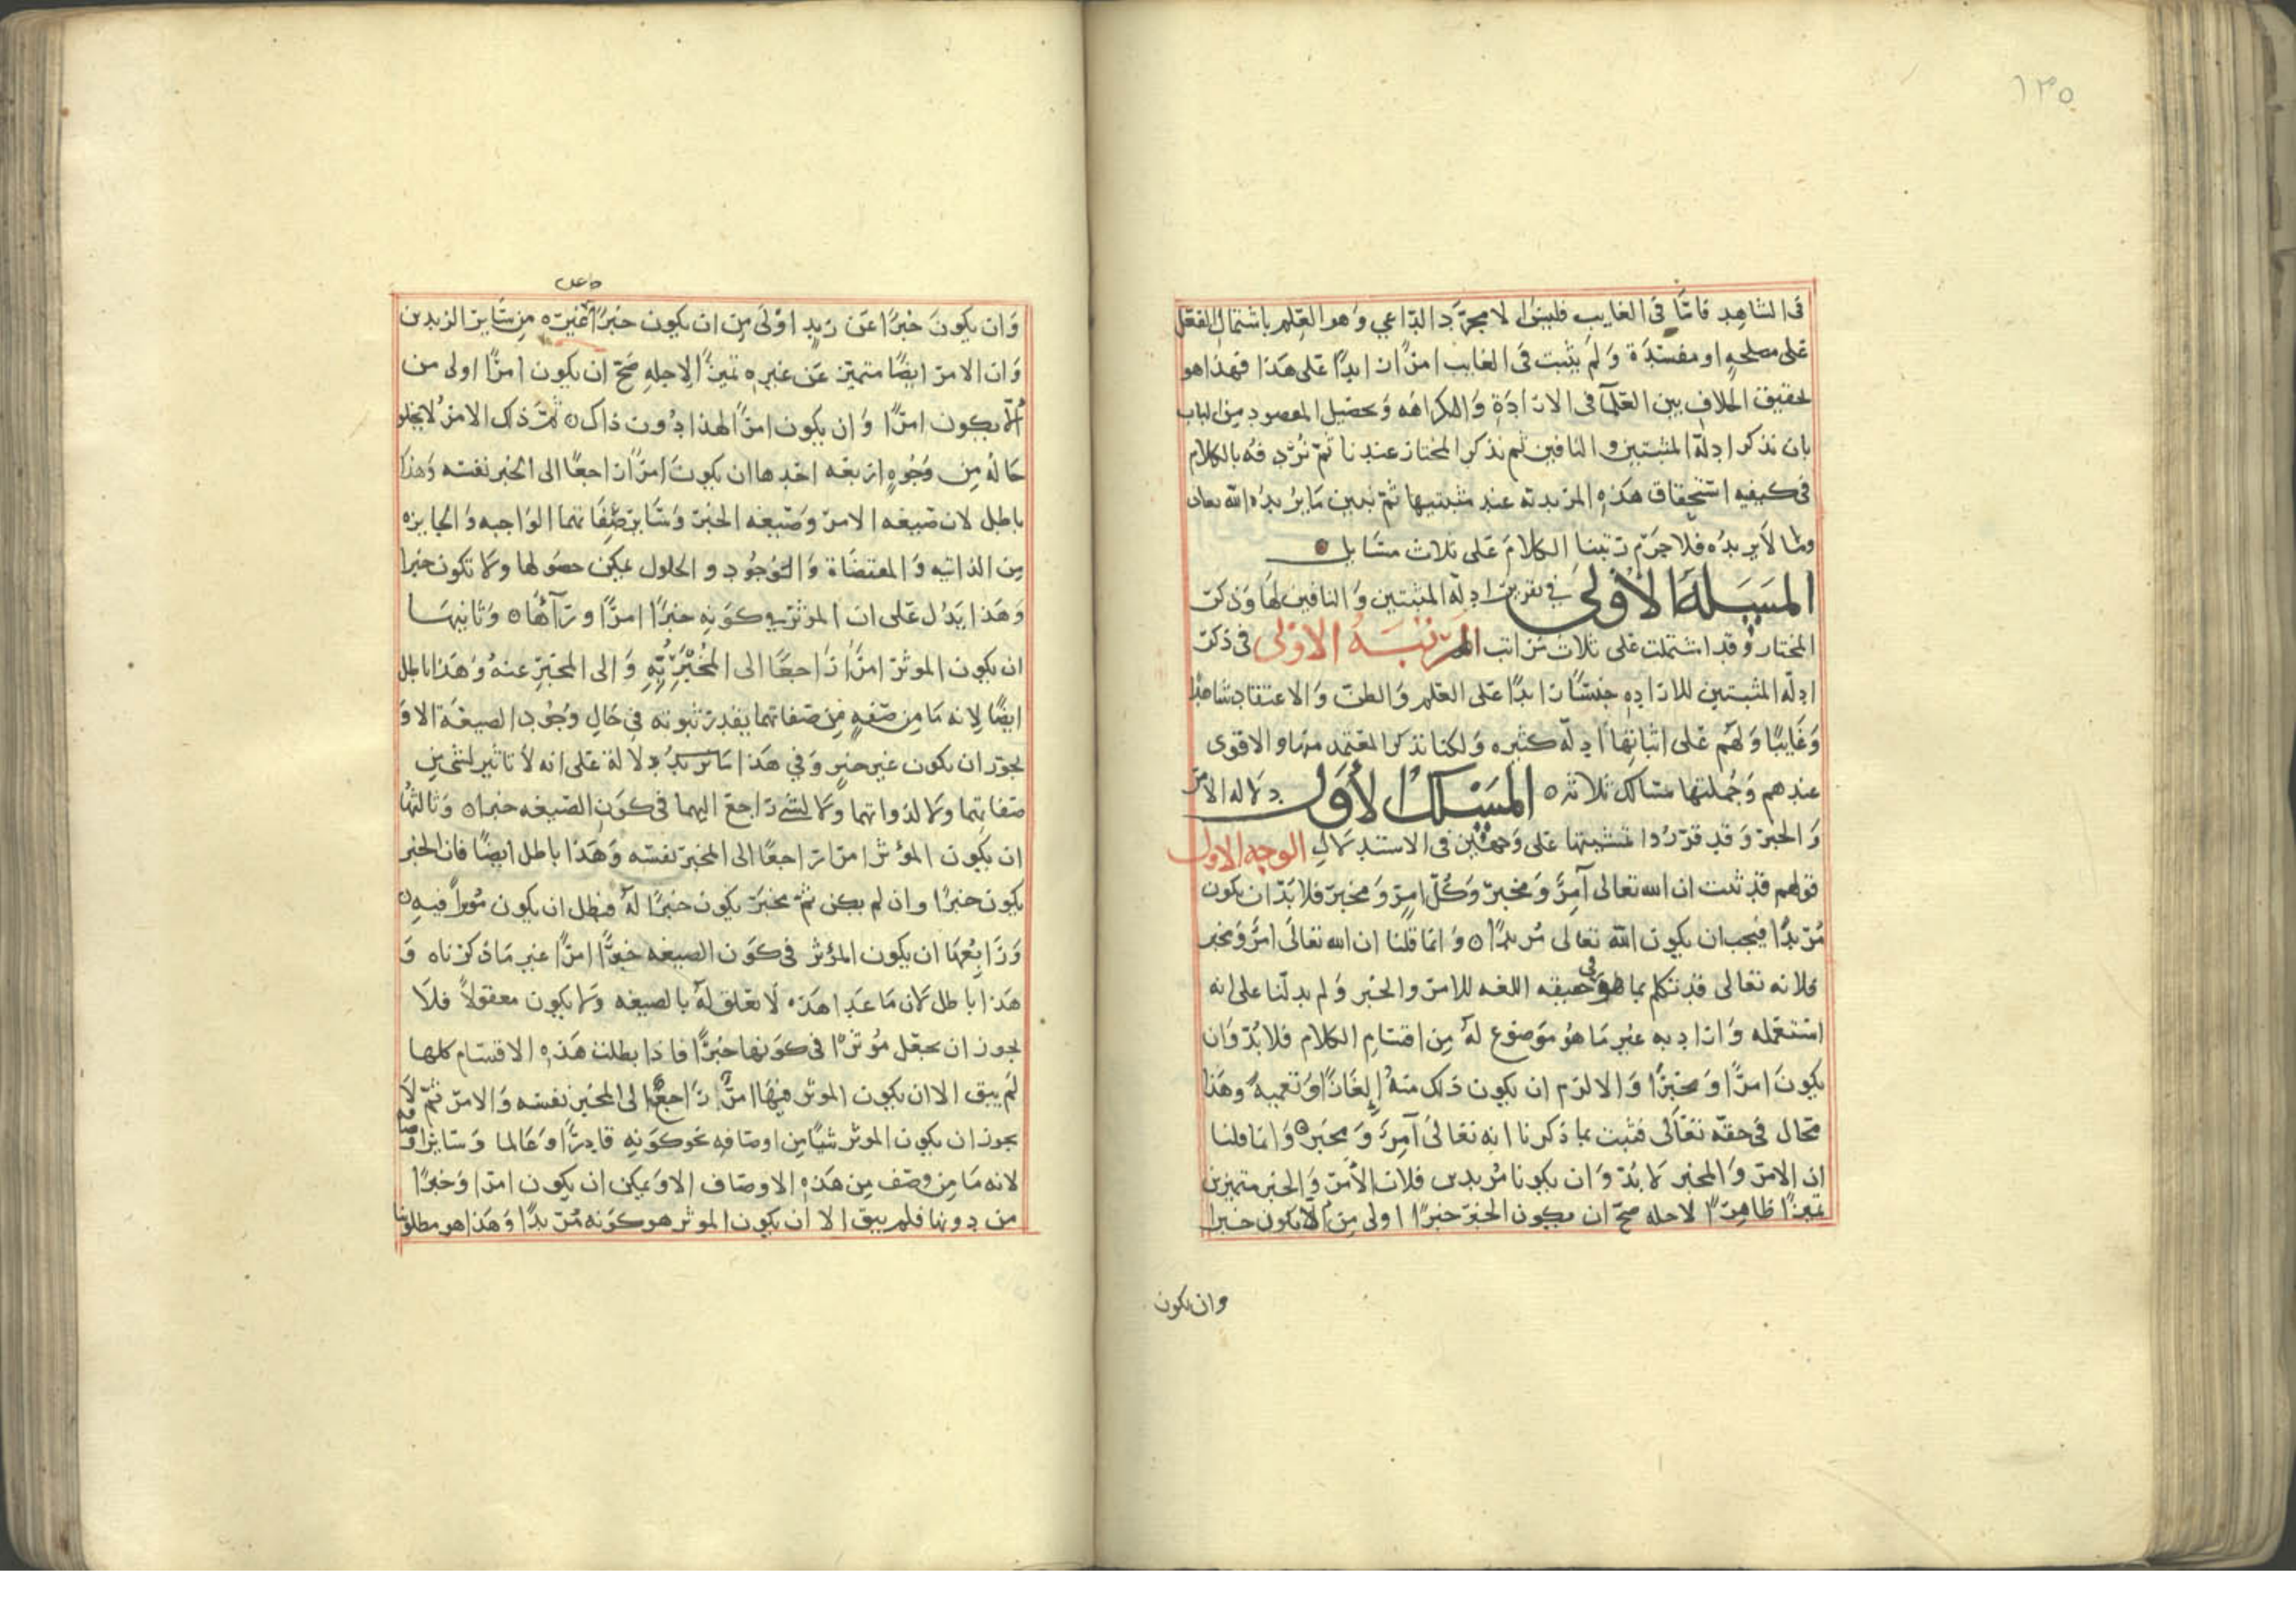 ١٣٥
فى الشاهد فامَّا فى الغايب فليس الا مجرَّد الدّاعي وَهو العِلم باشتمال الفعل
على مصلحهٍ او مفسَدَة وَلم يثبت فى الغايب امرًا زايدًا على هَذا فهذا هو
تحقيق الخلاف بين العلمآ فى الارادَةِ وَالكراهَه وَتحصيل المقصود من الباب
بان نذكر ادلّة المثبتين والنافين ثم نذكر المختار عندنا ثمّ نُرْدفُه بالكلام
فى كيفيه استحقاق هَذهِ المريديه عند مثبتيها ثمّ نبين مَا يرُيدُه الله تعالى
وما لاَ يريدُه فلا جرَم رتبنا الكلامَ عَلى ثلاث مسَايل
المَسَئلَة الأولىَ في تقرير ادلة المثبتين وَالنافين لهَا وَذكر
المختار وَقد اشتملت على ثلاث مَراتب المرتبَهُ الاولى فى ذكر
ادلّه المثبتين للارادهِ جنسًا زايدًا عَلى العلم وَالظن وَالاعتقاد شاهدًا
وَغَايبًا وَلهَم عَلى اثباتِهَا ادلّه كثيره وَلكنا نذكر المعتمَد منها والاقوى
عندهم وَجُملتها مسَالك ثلاثه ٥ المسَلكُ الأوَل دلاله الأمر
وَالخبر وَقد قرّرُوا تمسّكها عَلى وَجهين فى الاستدلال الوجه الاول
قولهم قد ثبت ان الله تعالى آمِرٌ وَمخبرٌ وَكُلّ امِرٍ وَمخبرٍ فلا بُدّ ان يكون
مُريدًا فيجب ان يكون اللّه تعالى مُريدًا ٥ وَانما قلنا ان الله تعالىَ امرٌ وَمخبر
فلانه تعالى قد تكلم بما هو فى حقيقه اللغه للامر والخبر وَلم يدلّنا على انه
استعمله وَاراد به غير مَا هُو مَوضوع لهُ مِن اقسَامِ الكلام فلا بُدّ وَان
يكونَ امرًا وَمخبرًا وَالا لزم ان يكون ذلك منهُ إلغَازًا وَتعميهً وَهَذا
محَال فى حقه تعَالى فثبت بما ذكرنا انه تعالىَ آمِرٌ وَمخبر ٥ وَانما قلنا
ان الامر وَالمخبر لا بُدّ وَان يكونا مُريدين فلان الأمر وَالخبر متميزين
تميزًا ظاهِرًا لاجله صحّ ان يكون الخبر خبرًا اولى مِن ألاّ يكون خبرا
وان يكون
وَان يكونَ خبرًا عَن زيدٍ اوْلىَ مِن ان يكون خبرًا عن غيره مِن سَاير الزيدين
وَان الامر ايضًا متميّز عَن غيرهِ تميزًا لاجلهِ صَحّ ان يكون امرًا اولى من
ألاّ يكون امرًا وَان يكون امرًا لهذا دُون ذاك ٥ ثمَّ ذلك الامرُ لا يخلو
حَالهُ مِن وُجُوهٍ اربعَه احدها ان يكونَ امرًا راجعًا الى الخبر نفسه وَهذا
باطل لان صيغه الامر وَصيغه الخبر وَسَاير صِفَاتهما الوَاجبه وَالجايزه
مِن الذاتيه وَالمقتضَاة وَالوُجُود والحلول يمكِن حصَولها ولا تكون خبرا
وَهَذا يَدُل عَلى ان المؤثر في كوَنِهِ خبرًا امرًا ورآهَا ٥ وَثانيهَا
ان يكون الموثر امرًا رَاجعًا الى المخُبَرِ بِّهِ وَالى المخبَرِ عنهُ وَهَذا باطل
ايضًا لِانه مَا مِن صِفهٍ مِن صفاتهما يقدر ثبوته فى حَالِ وُجُود الصيغَة الاوَ
يجوز ان يكون غير خبرٍ وَفي هَذا دِلالةَ عَلى انه لاَ تاثير لشىءٍ مِن
صفاتهما ولا لذواتهما وَلا لشىءٍ رَاجع اليهما فى كوَن الصيغه خبرا ٥ وَثالثها
ان يَكون المؤثر امرًا راجعًا الى المخبر نفسَه وَهَذا باطل ايضًا فان الخبر
يكون خبرًا وان لم يكن ثمّ مخبَر يَكون خبرًا لهُ فبطل ان يكون مُوثرًا فيهِ ٥
وَرَابِعُهَا ان يكون المؤثر فى كوَن الصيغه خبرًا امرًا غير مَا ذكرْناه وَ
هَذا باطل لان مَا عَدا هَذه لاَ تعلق لهَ بالصيغه وَلا يكون معقولاً فلاَ
يجوز ان يجعَل مُوثرًا فى كوَنها خبرًا فاذا بطلت هَذهِ الاقسَام كلها
لَم يبق الا ان يكون الموثر فيهَا امرًا رَاجعًا الى المخبر نفسه وَالامر ثمّ لاَ
يجوز ان يكون الموثر شيًا مِن اوصَافهِ نحو كوَنهِ قادِرًا وَعَالما وَسَايرِ اوصَافه
لانه مَا مِن وصف مِن هَذهِ الاوصَاف الاوَ يمكن ان يكون امرًا وَخبرًا
من دونها فلم يبق الا ان يكون الموثر هو كوَنه مُريدًا وَهَذا هو مطلوبنا